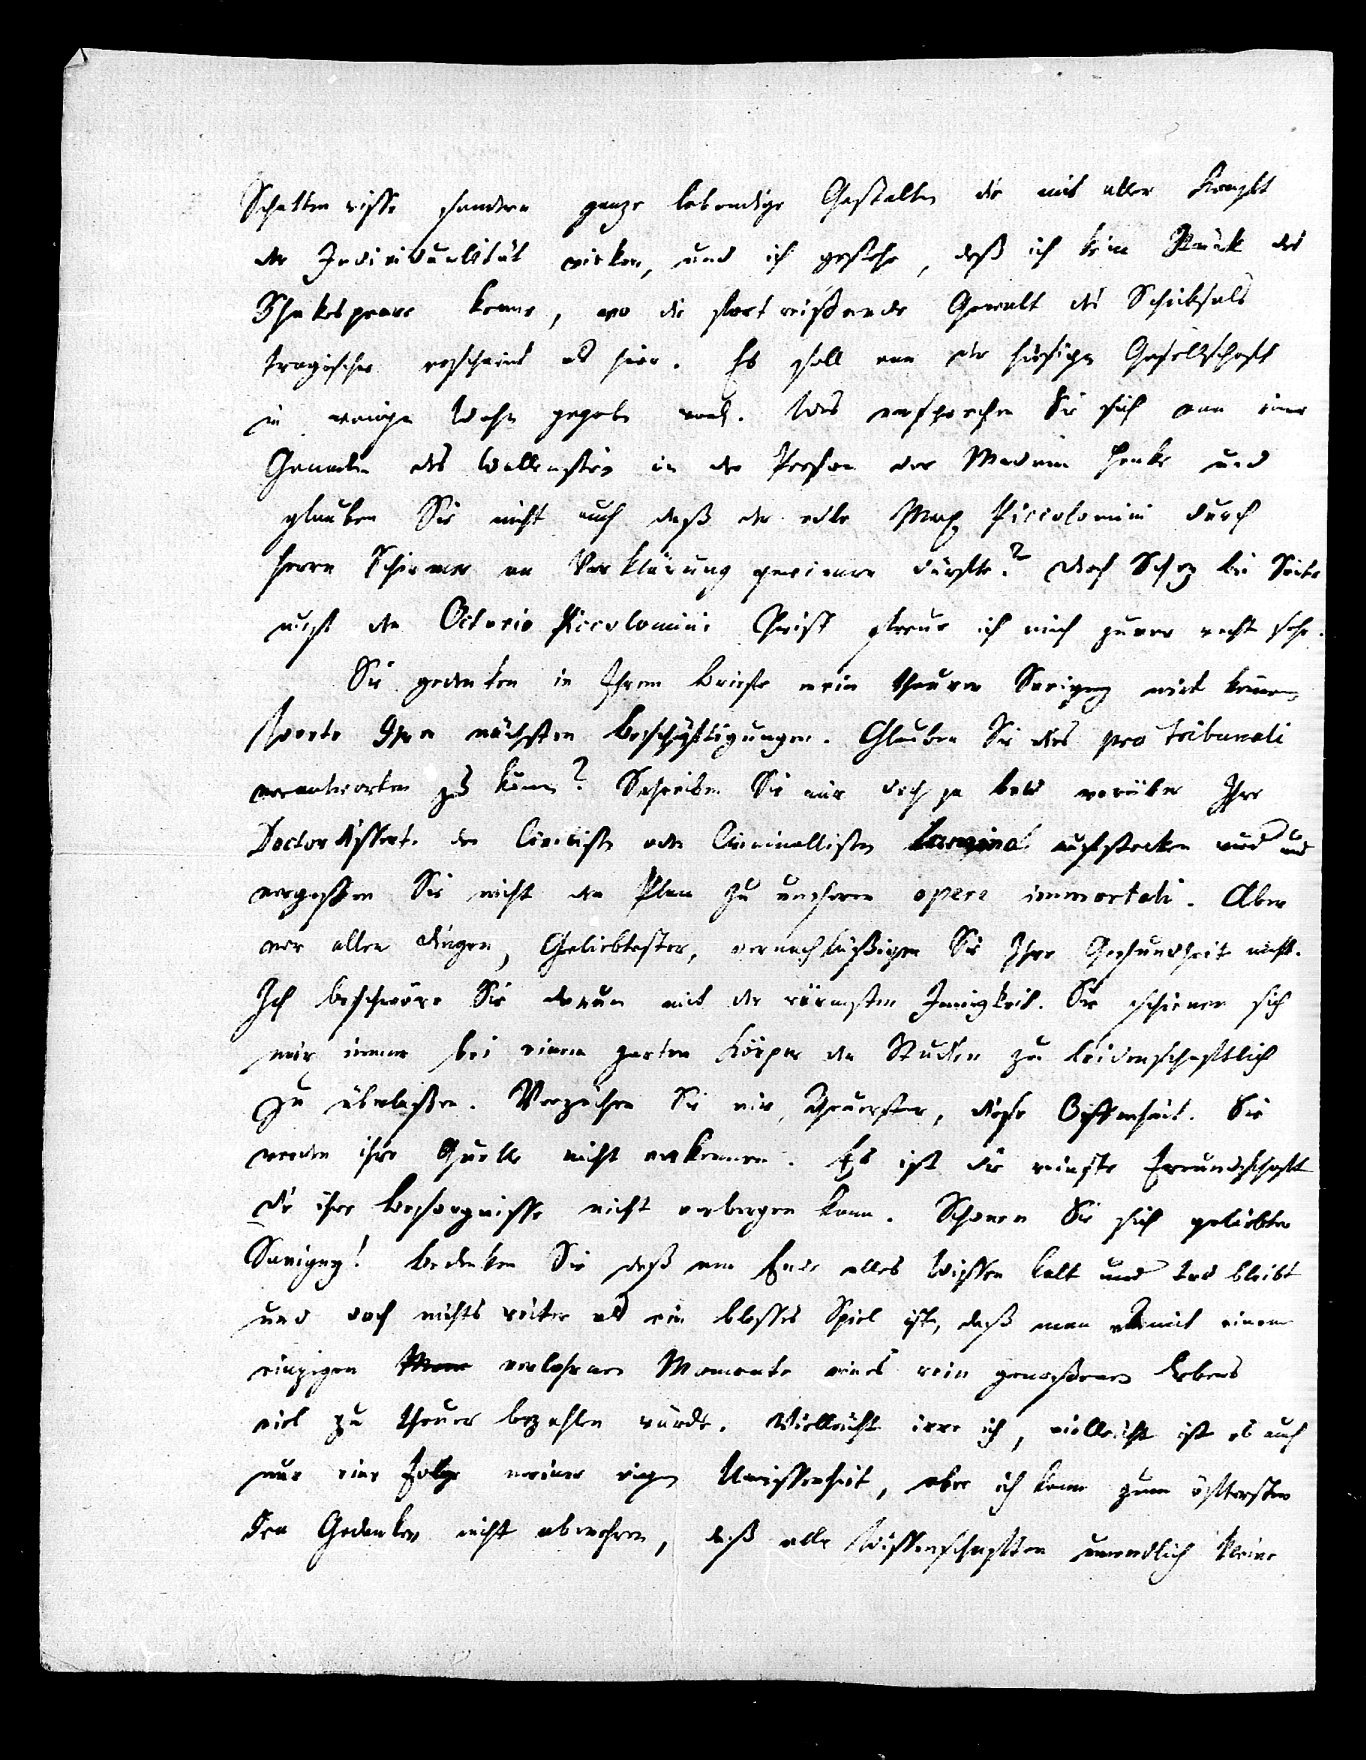 Schattenrisse sondern ganze lebendige Gestalten die mit aller Kraft
der Individualität wirken, und ich gestehe, daß ich kein Stück des
Shakespeare kenne, wo die fortreißende Gewalt des Schiksals
tragischer erscheint als hier. Es soll von der hiesigen Gesellschaft
in wenigen Wochen gegeben werd. Was versprechen Sie sich von einer
Gemalin des Wallenstein in der Person der Madam Henke und
glauben Sie nicht auch daß der edle Max Piccolomini durch
Herrn Schirmer an Verklärung gewinnen dürfte? Doch Scherz bei Seite
auf den Octavio Piccolomini Christ freue ich mich zwar recht sehr.
Sie gedenken in Ihrem Briefe mein theurer Savigny mit keinem
Worte Ihrer nächsten Beschäftigungen. Glauben Sie das pro tribunali
verantworten zu können? Schreiben Sie mir doch ja bald worüber Ihre
Doctordissert. den Civilisten oder Criminallisten Lumina aufstecken wird und
vergessen Sie nicht den Plan zu unserem opere immortali. Aber
vor allen Dingen, Geliebtester, vernachläßigen Sie Ihre Gesundheit nicht.
Ich beschwöre Sie darum mit der wärmsten Innigkeit. Sie schienen sich
mir immer bei einem zarten Körper den Studien zu leidenschaftlich
zu überlaßen. Verzeihen Sie mir, Theuerster, diese Offenheit. Sie
werden ihre Quelle nicht verkennen. Es ist die reinste Freundschaft
die ihre Besorgnisse nicht verbergen kann. Schonen Sie sich geliebter
Savigny! Bedenken Sie daß am Ende alles Wissen kalt und tod bleibt
und doch nichts weiter als ein blosses Spiel ist, daß man mit einem
einzigen verlohrnen Momente eines rein genoßenen Lebens
viel zu theuer bezahlen würde. Vielleicht irre ich, vielleicht ist es auch
nur eine Folge meiner eignen Unwissenheit, aber ich kann zum öfttersten
den Gedanken nicht abwehren, daß alle Wissenschaften unendlich kleine